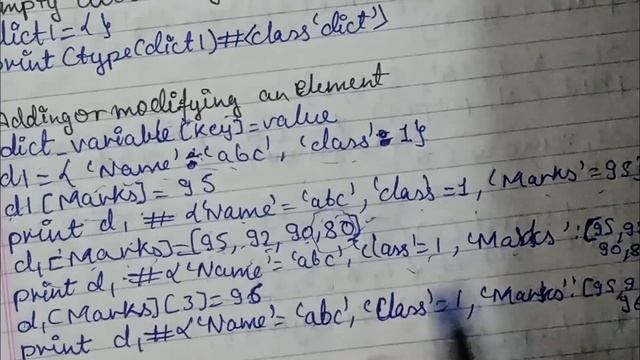 dict1={}
print(type(dict1)#<class'dict'>
Adding or modifying an element
dict_variable[key]=value
d1={'Name':'abc','class':1}
d1[Marks]=95
print d1 #{'Name'='abc','class'=1,'Marks'=95
d1[Marks]=[95,92,90,80]
print d1 #{'Name'='abc','class'=1,'Marks':[95,9
90,8
d1[Marks][3]=96
print d1 #{'Name'='abc','Class'=1,'Marks':[95,9